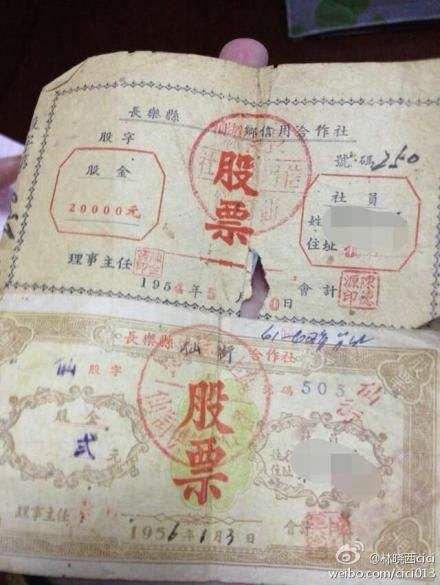 長樂縣 鄉信用合作社
股字 號碼250
股票
股金
20000元
社員
姓
住址
理事主任
會計
1954年5月 0日
長樂縣 仙街 合作社
仙 股字 號碼 505
股票
股金
貳元
住址
理事主任
會計
1956年1月3日
@林晓西cici
weibo.com/cici013